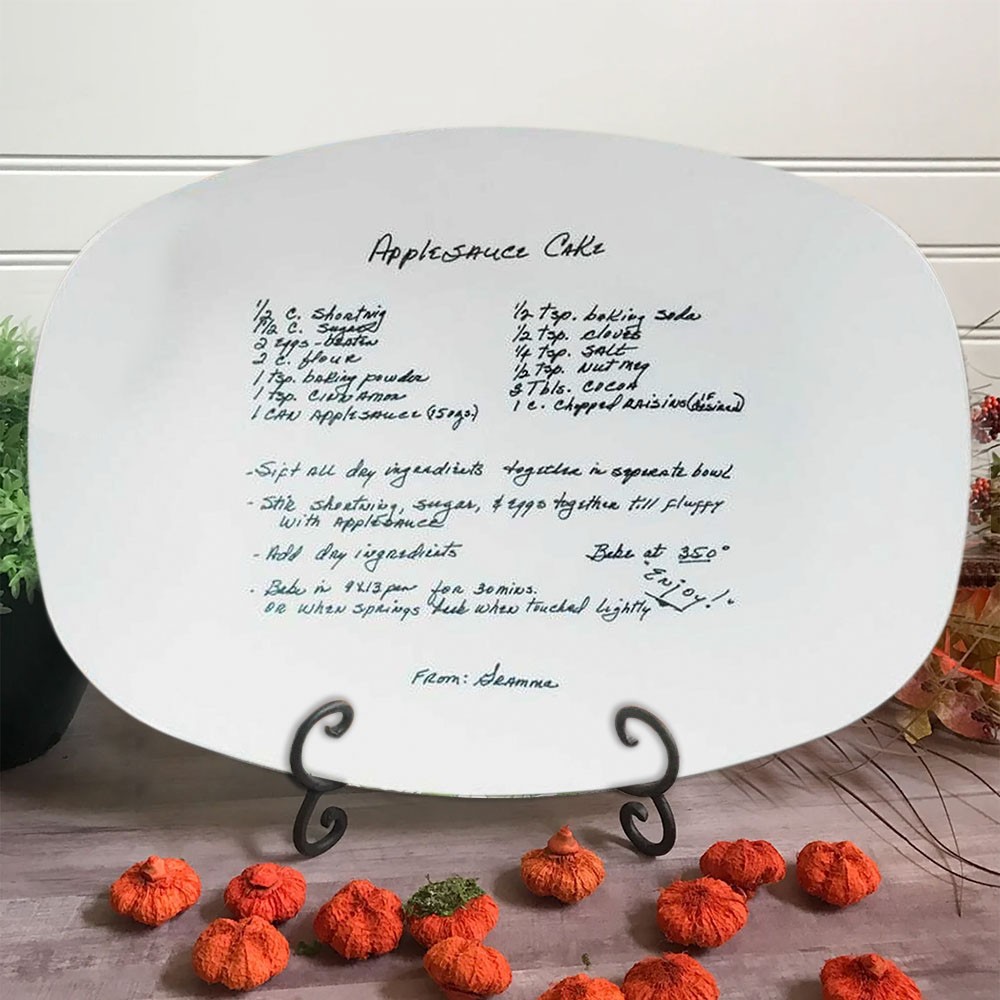 Applesauce Cake
1/2 c. shortnig
1 1/2 c. sugar
2 eggs - beaten
2 c. flour
1 tsp. baking powder
1 tsp. cinnamon
1 can applesauce (15ozs.)
1/2 tsp. baking soda
1/2 tsp. cloves
1/4 tsp. salt
1/2 tsp. nutmeg
3 Tbls. cocoa
1 c. chopped raisins (if desired)
- Sift all dry ingredients together in seperate bowl
- Stir shortning, sugar, & eggs together till fluffy
with applesauce
- Add dry ingredients
Bake at 350°
- Bake in 9x13 pan for 30 mins.
or when springs back when touched lightly
Enjoy!
From: Gramma